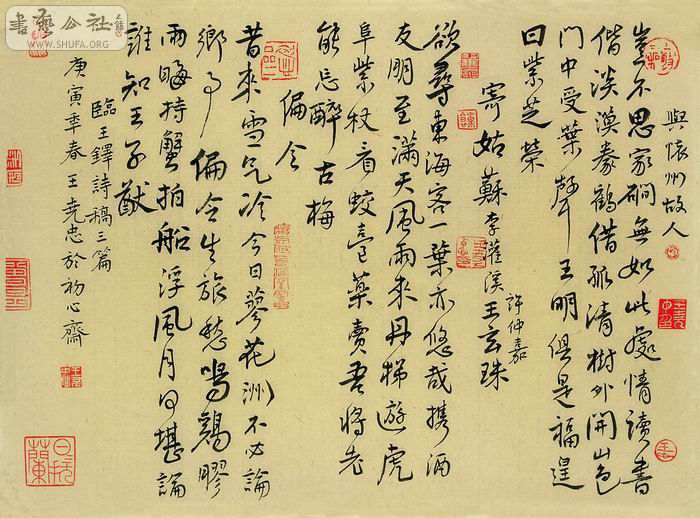 與懷州故人
豈不思家礀無如此處情讀書
偕淡漠豢鶴借孤清樹外開山色
門中受葉聲王明俱是福遑
曰紫芝榮
寄姑蘇李灌溪王玄珠
許仲嘉
欲尋東海客一葉亦悠哉攜酒
友朋至滿天風雨來丹梯遊虎
阜紫杖看蛟臺藥賣吾將老
能忘醉古梅
偏令
昔來雪氣冷今日蓼花洲不必論
鄉多偏令生旅愁鳴鷄膠
雨晦持蟹拍船浮風月何堪論
誰知王子猷
臨王鐸詩稿三篇
庚寅年春王堯忠於初心齋
書藝公社
WWW.SHUFA.ORG